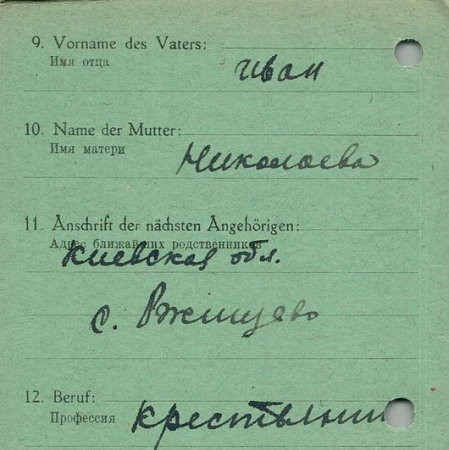 9. Vorname des Vaters:
Имя отца
Иван
10. Name der Mutter:
Имя матери
Николаева
11. Anschrift der nächsten Angehörigen:
Адрес ближайших родственников
Киевская обл.
с. Ржищево
12. Beruf:
Профессия